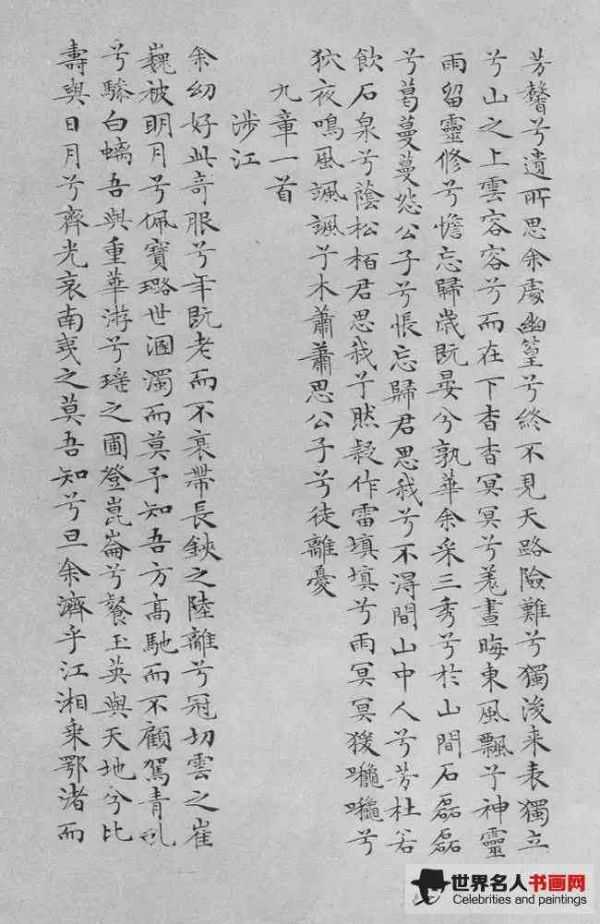 芳馨兮遺所思余處幽篁兮終不見天路險難兮獨後来表獨立
兮山之上雲容容兮而在下杳杳冥冥兮羌晝晦東風飄兮神靈
雨留靈修兮憺忘歸歲既晏兮孰華余采三秀兮於山間石磊磊
兮葛蔓蔓怨公子兮悵忘歸君思我兮不淂間山中人兮芳杜若
飲石泉兮蔭松栢君思我兮然疑作雷填填兮雨冥冥猨囎囎兮
狖夜鳴風颯颯兮木蕭蕭思公子兮徒離憂
九章一首
涉江
余幼好此奇服兮年既老而不衰帶長鋏之陸離兮冠切雲之崔
巍被明月兮佩寶璐世溷濁而莫予知吾方髙馳而不顧駕青虬
兮驂白螭吾與重華游兮瑤之圃登崑崙兮餐玉英與天地兮比
壽與日月兮齊光哀南夷之莫吾知兮旦余濟乎江湘乘鄂渚而
世界名人书画网
Celebrities and paintings